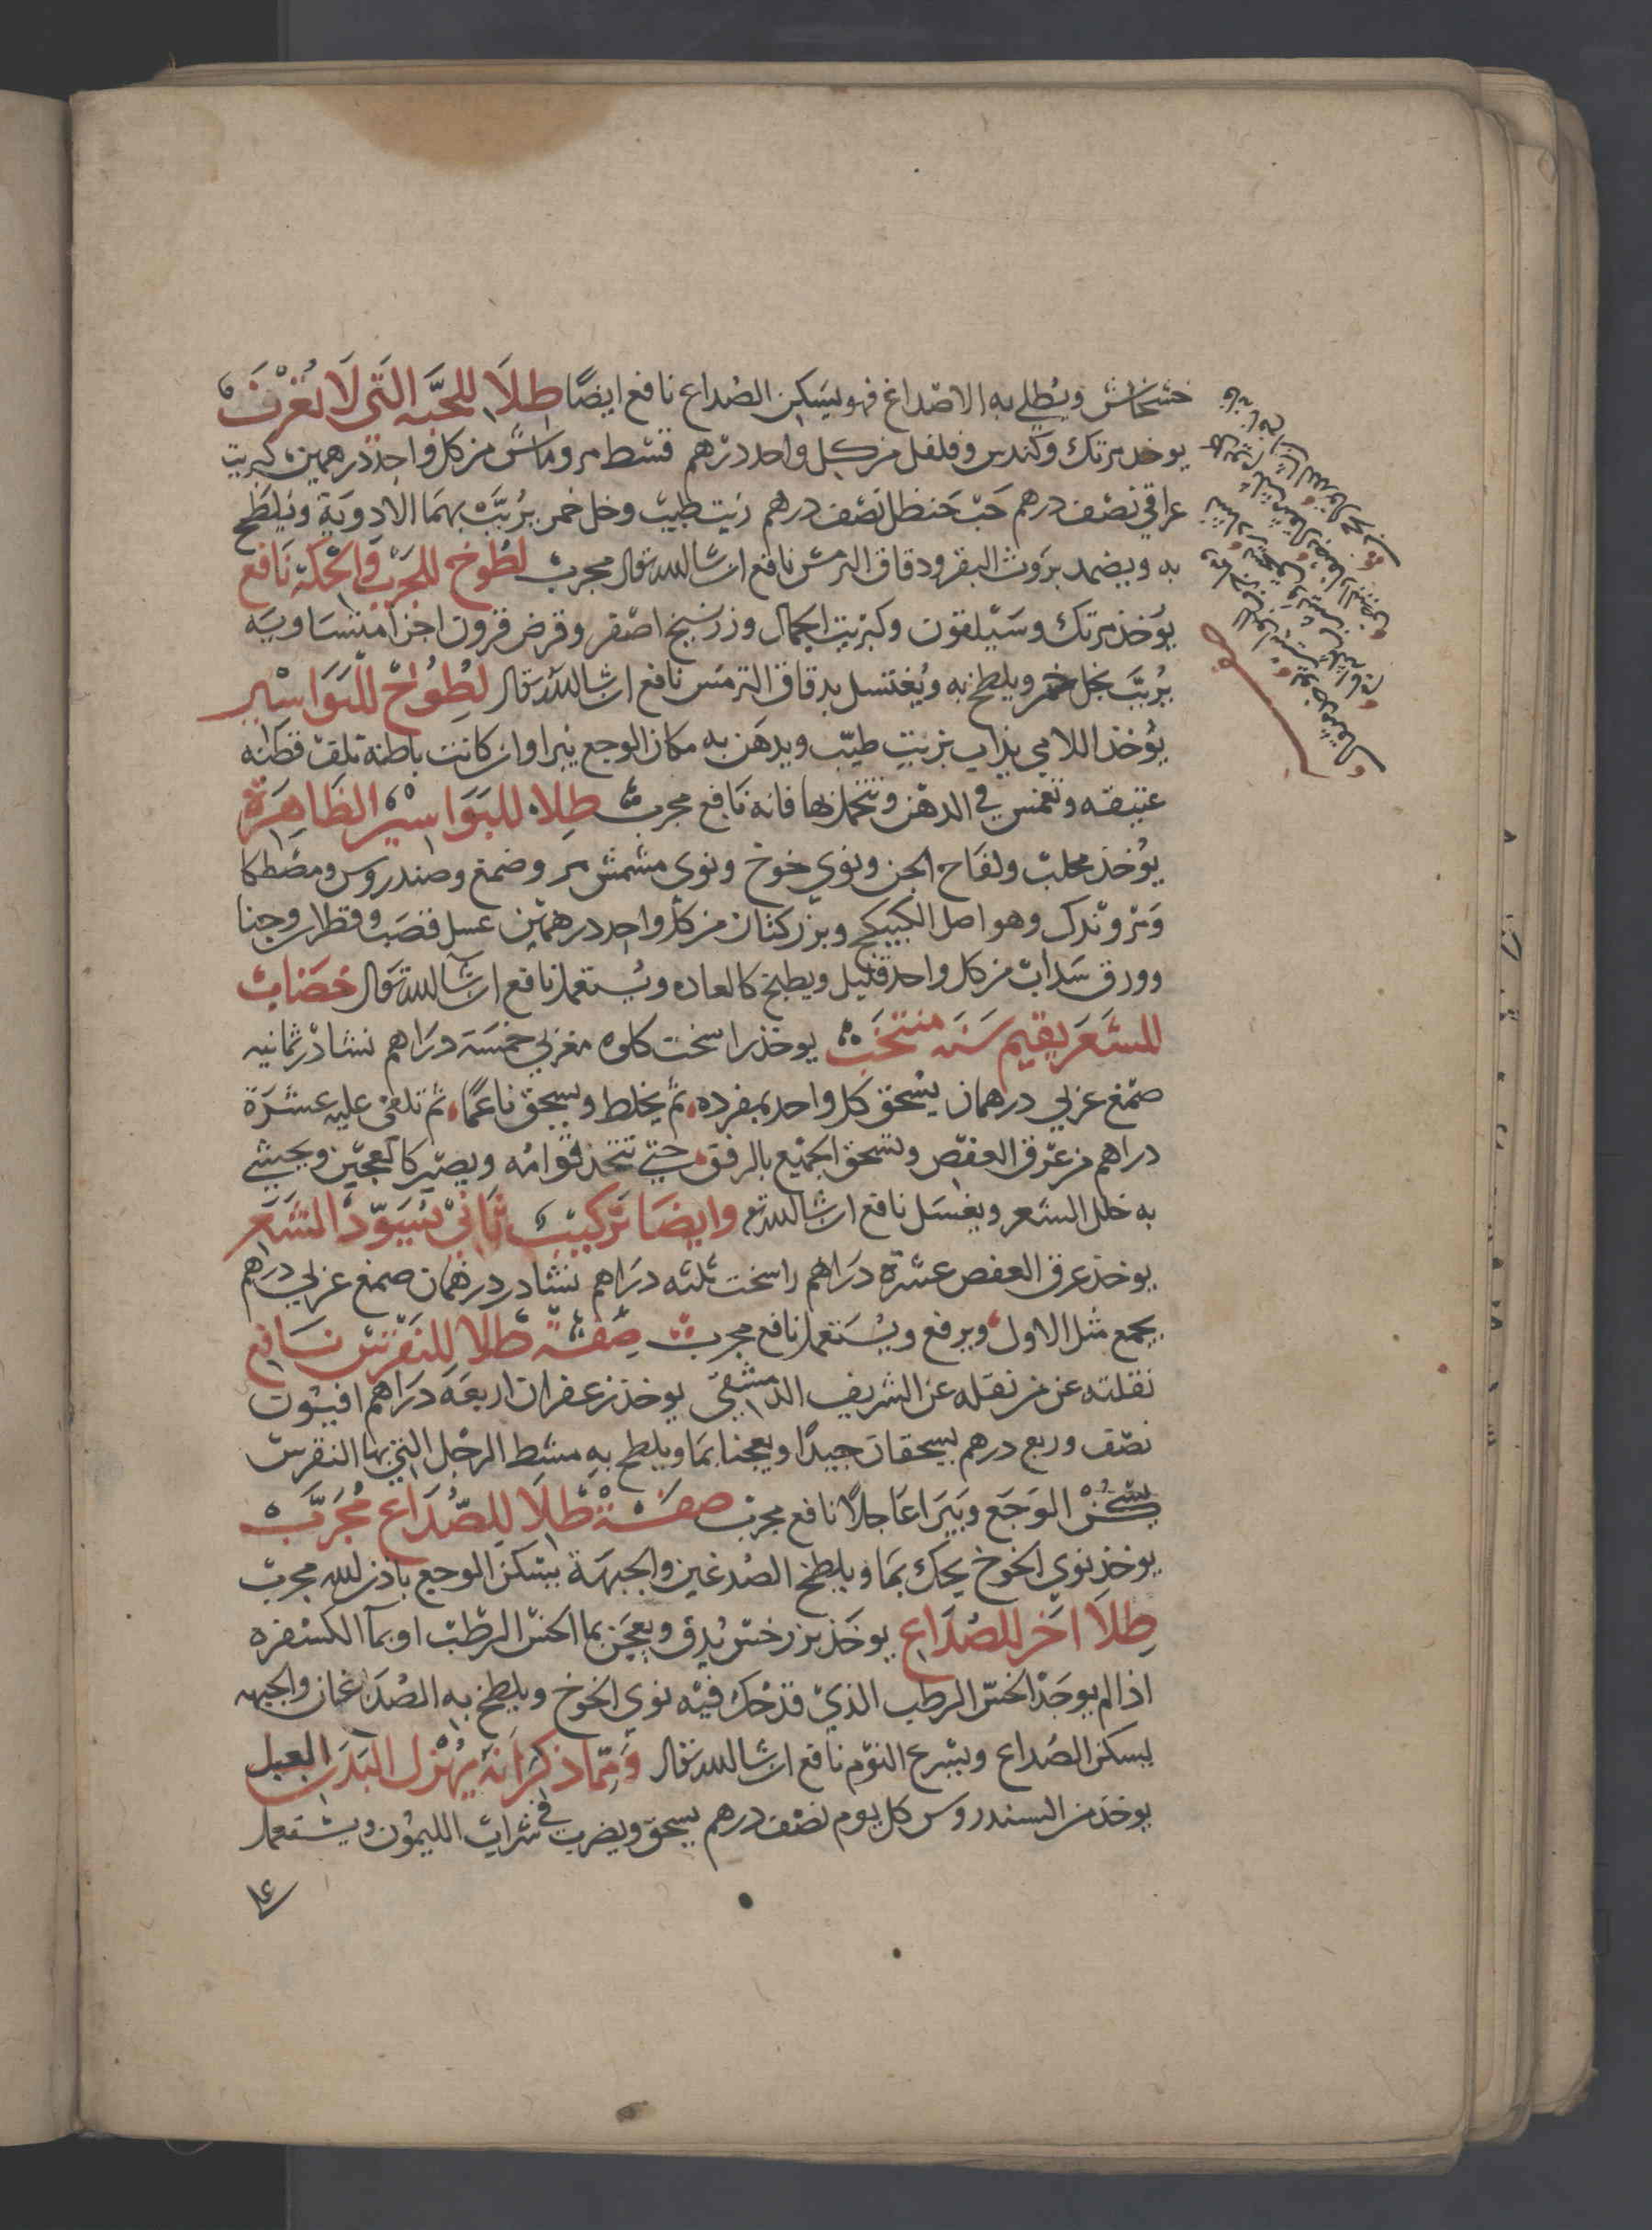 خشخاش ويطلي به الاصداغ فهو يسكن الصداع نافع ايضًا طلا للحبّه التي لا تعرف
يوخد مرتك وكندس وفلفل من كل واحد درهم قسط مر وماش من كل واحد درهمين كبريت
عراقي نصف درهم حب حنظل نصف درهم زيت طيب وخل خمر يربّب بهما الادوية ويلطخ
به ويضمد بروث البقر ودقاق الترمس نافع ان شا الله تعالى مجرب لطوخ للجرب والحكة نافع
يوخذ مرتك وسيلقون وكبريت الجمال وزرنيخ اصفر وقرض قرون اجزا متساويه
يربّب بخل خمر ويلطخ به ويغتسل بدقاق الترمس نافع ان شا الله تعالى لطواخ للبواسير
يوخذ اللامي يذاب بزيت طيّب ويدهن به مكان الوجع يبرا وان كانت باطنة تلف قطنه
عتيقه وتغمس في الدهن وتتحمل بها فانه نافع مجرب طلاء للبواسير الظاهرة
يوخذ محلب ولفاح الجن ونوي خوخ ونوى مشمش مر وصمغ وصندروس ومصطكا
وهو اصل الكبيكج وبزر كتان من كل واحد درهمين عسل قصب وقطران وحنا
وورق سداب من كل واحد قليل ويطبخ كالعاده ويستعمل نافع ان شا الله تعالى خضاب
للشعر يقيم سنه منتخب يوخذ راسخت كاوه مغربي خمسة دراهم نشادر ثمانيه
صمغ عربي درهمان يسحق كل واحد بمفرده ثم يخلط ويسحق ناعمًا ثم تلقى عليه عشرة
دراهم من عرق العفص وتسحق الجميع بالرفق حتى تتخذ قوامه ويصير كالعجين ويحشي
به خلل الشعر ويغسل نافع ان شا الله تع وايضا تركيب ثاني يسوّد الشعر
يوخذ عرق العفص عشرة دراهم راسخت ثلثه دراهم نشادر درهمان صمغ عربي درهم
يجمع مثل الاول ويرفع ويستعمل نافع مجرب صفة طلا للنقرس نافع
نقلته عن من نقله عن الشريف الدمشقي يوخذ زعفران اربعة دراهم افيون
نصف وربع درهم يسحقان جيدًا ويعجنا بما ويلطخ به مشط الرجل التي بها النقرس
يسكن الوجع ويبرا عاجلًا نافع مجرب صفة طلا للصداع مجرب
يوخذ نوي الخوخ يحك بما ويلطخ الصدغين والجبهة يسكن الوجع باذن الله مجرب
طلا اخر للصداع يوخذ بزر خس يدق ويعجن بما الخس الرطب او بما الكسفره
اذا لم يوجد الخس الرطب الذي قد حك فيه نوي الخوخ ويلطخ به الصداغان والجبهه
يسكن الصداع ويسرع النوم نافع ان شا الله تعالى ومما ذكر انه يهزل البدن العبل
يوخذ من السندروس كل يوم نصف درهم يسحق ويضرب في شراب الليمون ويستعمل